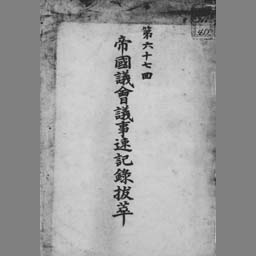 第六十七回
帝國議會議事速記錄拔萃